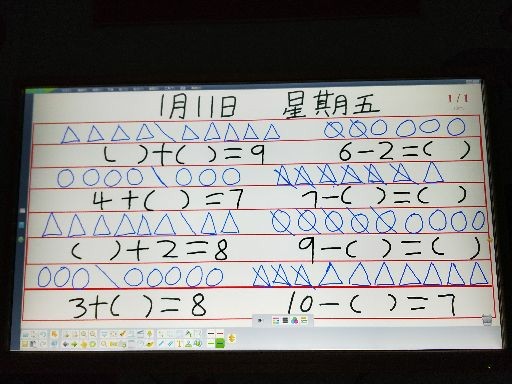 1月11日 星期五
1/1
( )+( )=9 6-2=( )
4+( )=7 7-( )=( )
( )+2=8 9-( )=( )
3+( )=8 10-( )=7